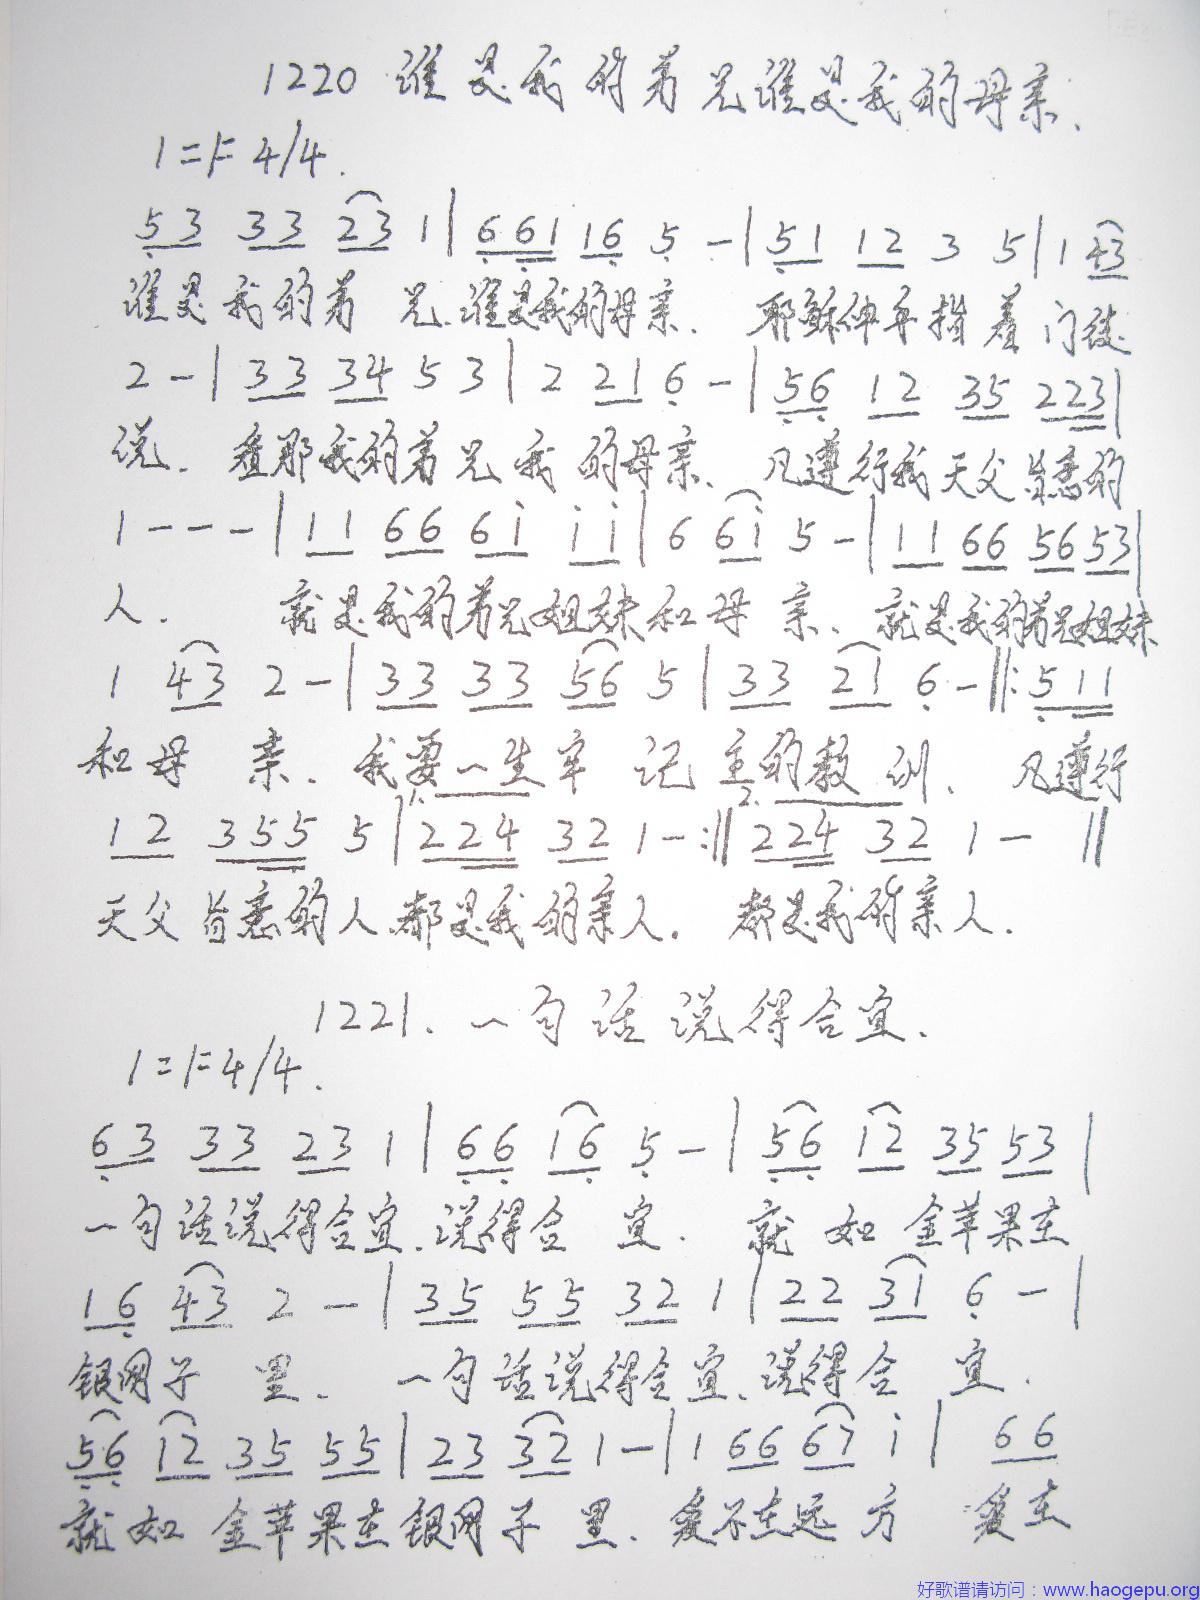 1220 谁是我的弟兄谁是我的母亲.
1=F 4/4.
53 33 23 1| 6 61 16 5 -| 51 12 3 5| 1 43
谁是我的弟兄.谁是我的母亲. 耶稣伸手指着门徒
2 -| 33 34 5 3| 2 21 6 -| 56 12 35 223|
说. 看那我的弟兄我的母亲. 凡遵行我天父旨意的
1 - - -| 11 66 6i ii| 6 6i 5 -| 11 66 56 53|
人. 就是我的弟兄姐妹和母亲. 就是我的弟兄姐妹
1 43 2 -| 33 33 56 5| 33 21 6 -‖: 511
和母亲. 我要一生牢记主的教训. 凡遵行
12 355 5| 1. 224 32 1 -:‖ 2. 224 32 1 - ‖
天父旨意的人.都是我的亲人. 都是我的亲人.
1221. 一句话说得合宜.
1=F 4/4.
63 33 23 1| 66 16 5 -| 56 12 35 53|
一句话说得合宜.说得合宜. 就如金苹果在
16 43 2 -| 35 55 32 1| 22 31 6 -|
银网子里. 一句话说得合宜.说得合宜.
56 12 35 55| 23 32 1 -| 1 66 67 i| 66
就如金苹果在银网子里. 爱不在远方 爱在
好歌谱请访问：www.haogepu.org